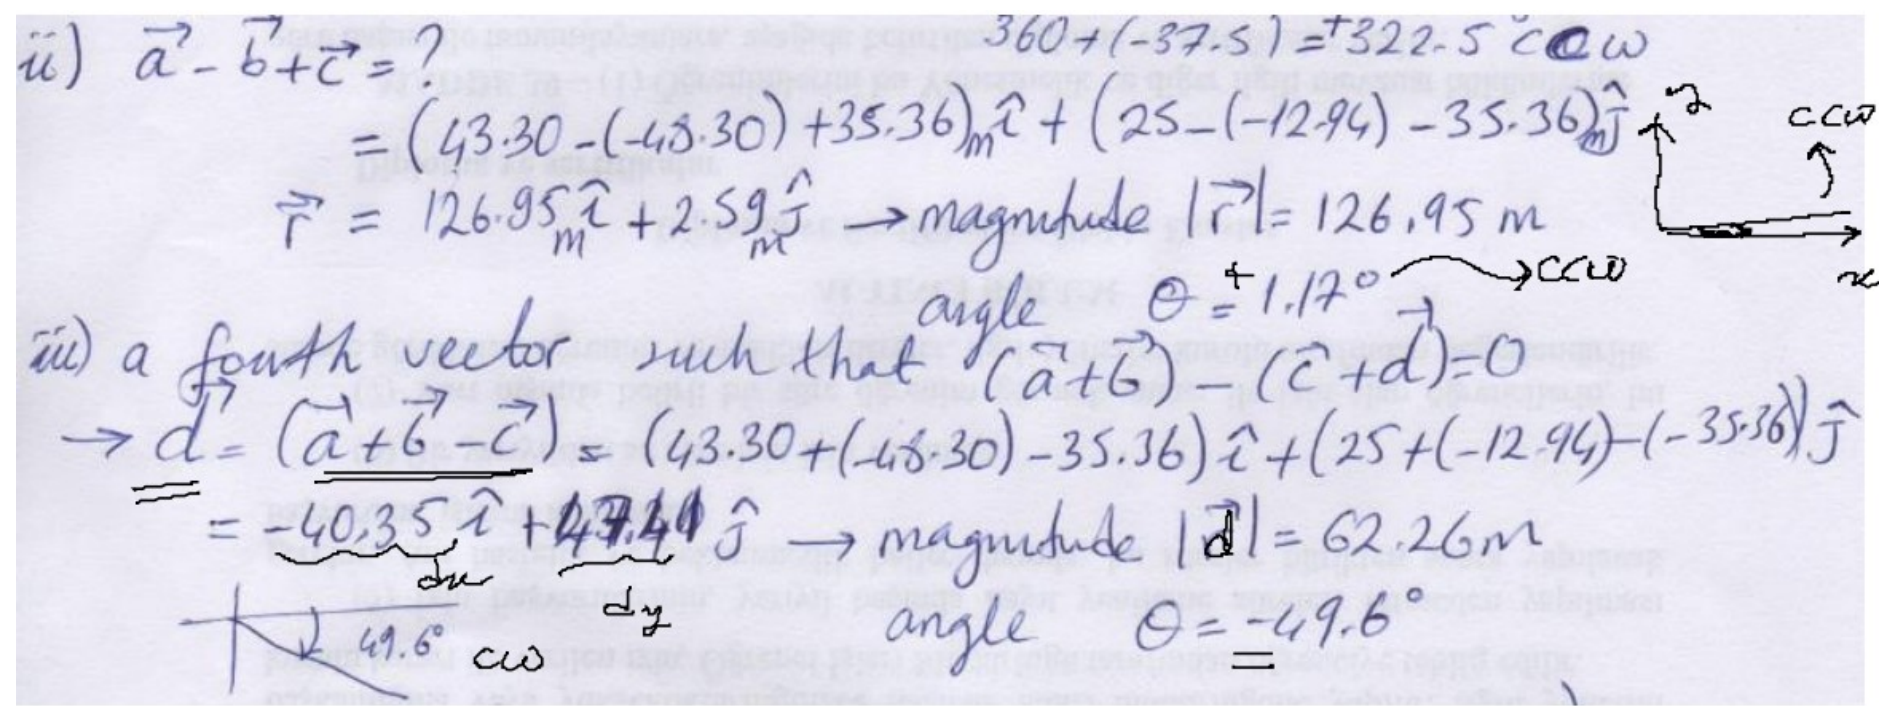 ii) a⃗ - b⃗ + c⃗ = ?
360 + (-37.5) = +322.5° ccw
= (43.30 - (-48.30) + 35.36)m î + (25 - (-12.94) - 35.36)m ĵ
ccw
r⃗ = 126.95m î + 2.59m ĵ → magnitude |r⃗| = 126.95 m
angle θ = +1.17° → ccw
x
iii) a fourth vector such that (a⃗ + b⃗) - (c⃗ + d⃗) = 0
→ d⃗ = (a⃗ + b⃗ - c⃗) = (43.30 + (-48.30) - 35.36) î + (25 + (-12.94) - (-35.36)) ĵ
= -40.35 î + 47.41 ĵ → magnitude |d⃗| = 62.26m
dx
dy
49.6° cw
angle θ = -49.6°